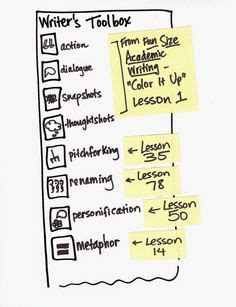 Writer's Toolbox
action
dialogue
snapshots
thoughtshots
pitchforking
renaming
personification
metaphor
From Fun Size
Academic
Writing -
"Color It Up"
Lesson 1
← Lesson
35
← Lesson
78
← Lesson
50
← Lesson
14